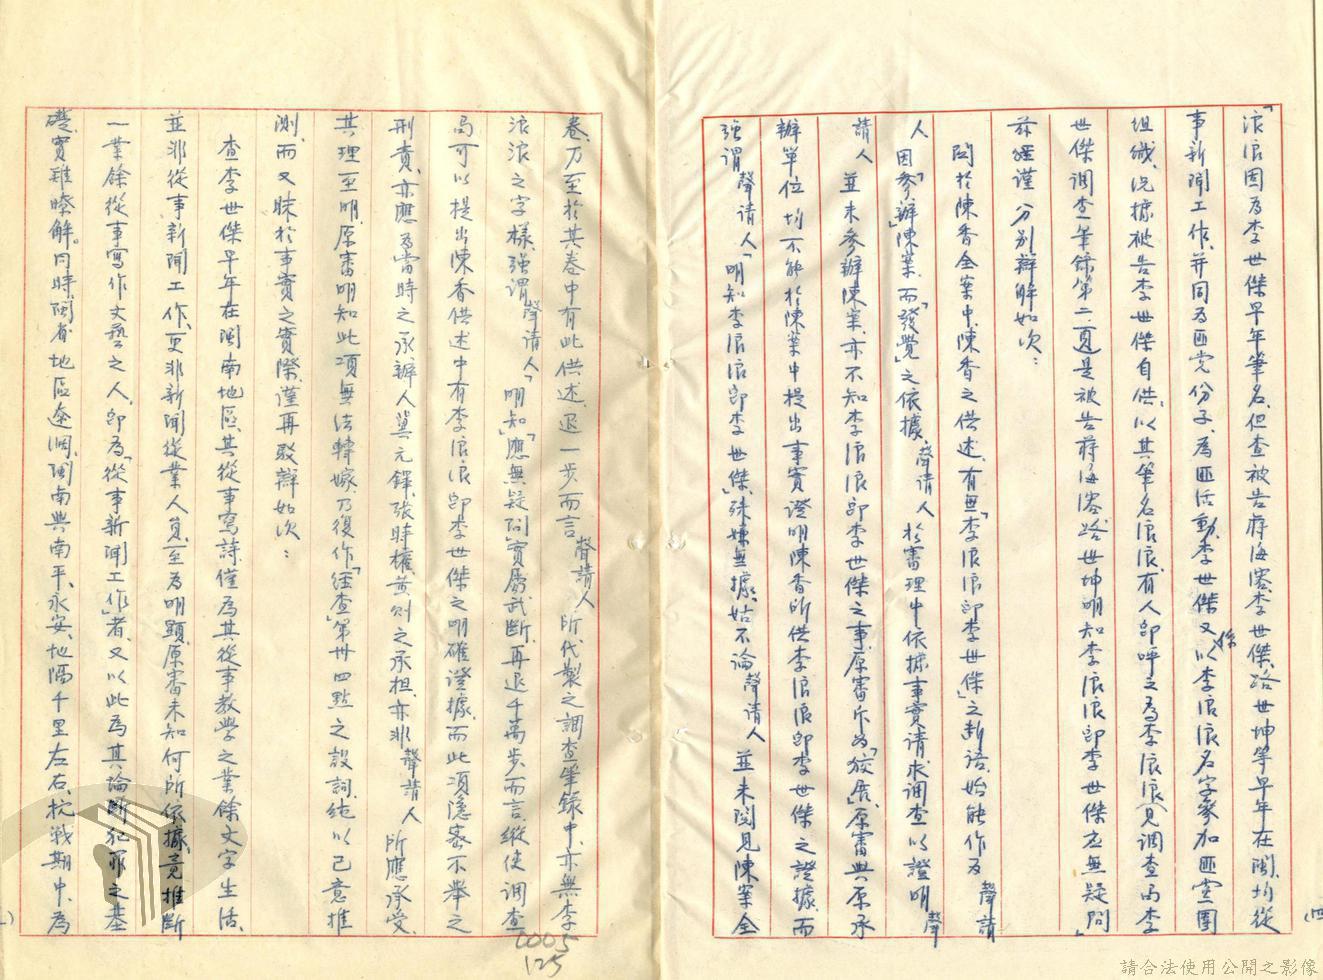 「浪浪固為李世傑早年筆名、但查被告蔣海溶李世傑、路世坤等早年在閩、均從
事新聞工作、并同為匪党份子、為匪活動、李世傑又係以李浪浪名字參加匪党團
組織、況據被告李世傑自供、以其筆名浪浪、有人即呼之為李浪浪（見調查局李
世傑調查筆錄第二頁）是被告蔣海溶路世坤明知李浪浪即李世傑應無疑問」
茲經謹分別辯解如次：
關於陳香全案中、陳香之供述、有無「李浪浪即李世傑」之斷語、始能作為聲請
人因「參辦」陳案、而「發覺」之依據、聲請人於審理中依據事實請求調查以證明聲
請人並未參辦陳案、亦不知李浪浪即李世傑之事、原審斥為「狡展」、原審與原承
辦單位均不能於陳案中提出事實證明陳香所供李浪浪即李世傑之證據、而
強謂聲請人「明知李浪浪即李世傑」、殊嫌無據、姑不論聲請人並未閱見陳案全
(四
卷、乃至於其卷中有此供述、退一步而言聲請人所代製之調查筆錄中、亦無李
浪浪之字樣、強謂聲請人「明知」、「應無疑問」實屬武斷、再退千萬步而言、縱使調查
局可以提出陳香供述中有李浪浪即李世傑之明確證據、而此項隱密不舉之
刑責、亦應為當時之承辦人冀元鐸、張曄權、黃剡之承担、亦非聲請人所應承受、
其理至明、原審明知此項無法轉嫁、乃復作「經查」第卅四點之設詞、純以己意推
測、而又昧於事實之實際、謹再駁辯如次：
查李世傑早年在閩南地區、其從事寫詩、僅為其從事教學之業餘文字生活、
並非從事新聞工作、更非新聞從業人員、至為明顯、原審未知何所依據、竟推斷
一業餘從事寫作文藝之人、即為「從事新聞工作」者、又以此為其論斷犯罪之基
礎、實難瞭解。同時、閩省地區遼濶、閩南與南平、永安、地隔千里左右、抗戰期中、為
0005
125
請合法使用公開之影像